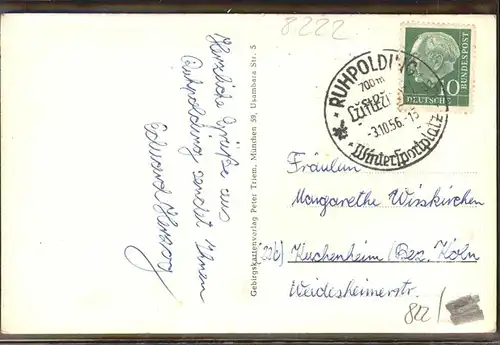 8222
Herzliche Grüße aus
Ruhpolding sendet Ihnen
Eduard Herzog
Gebirgskartenverlag Peter Triem, München 59, Usambara Str. 5
RUHPOLDING
700m
Luftkurort
-3.10.56.-15
Wintersportplatz
10
DEUTSCHE
BUNDESPOST
Fräulein
Margarethe Wisskirchen
(22c) Kuchenheim (Bez. Köln
Weidesheimerstr.
822/